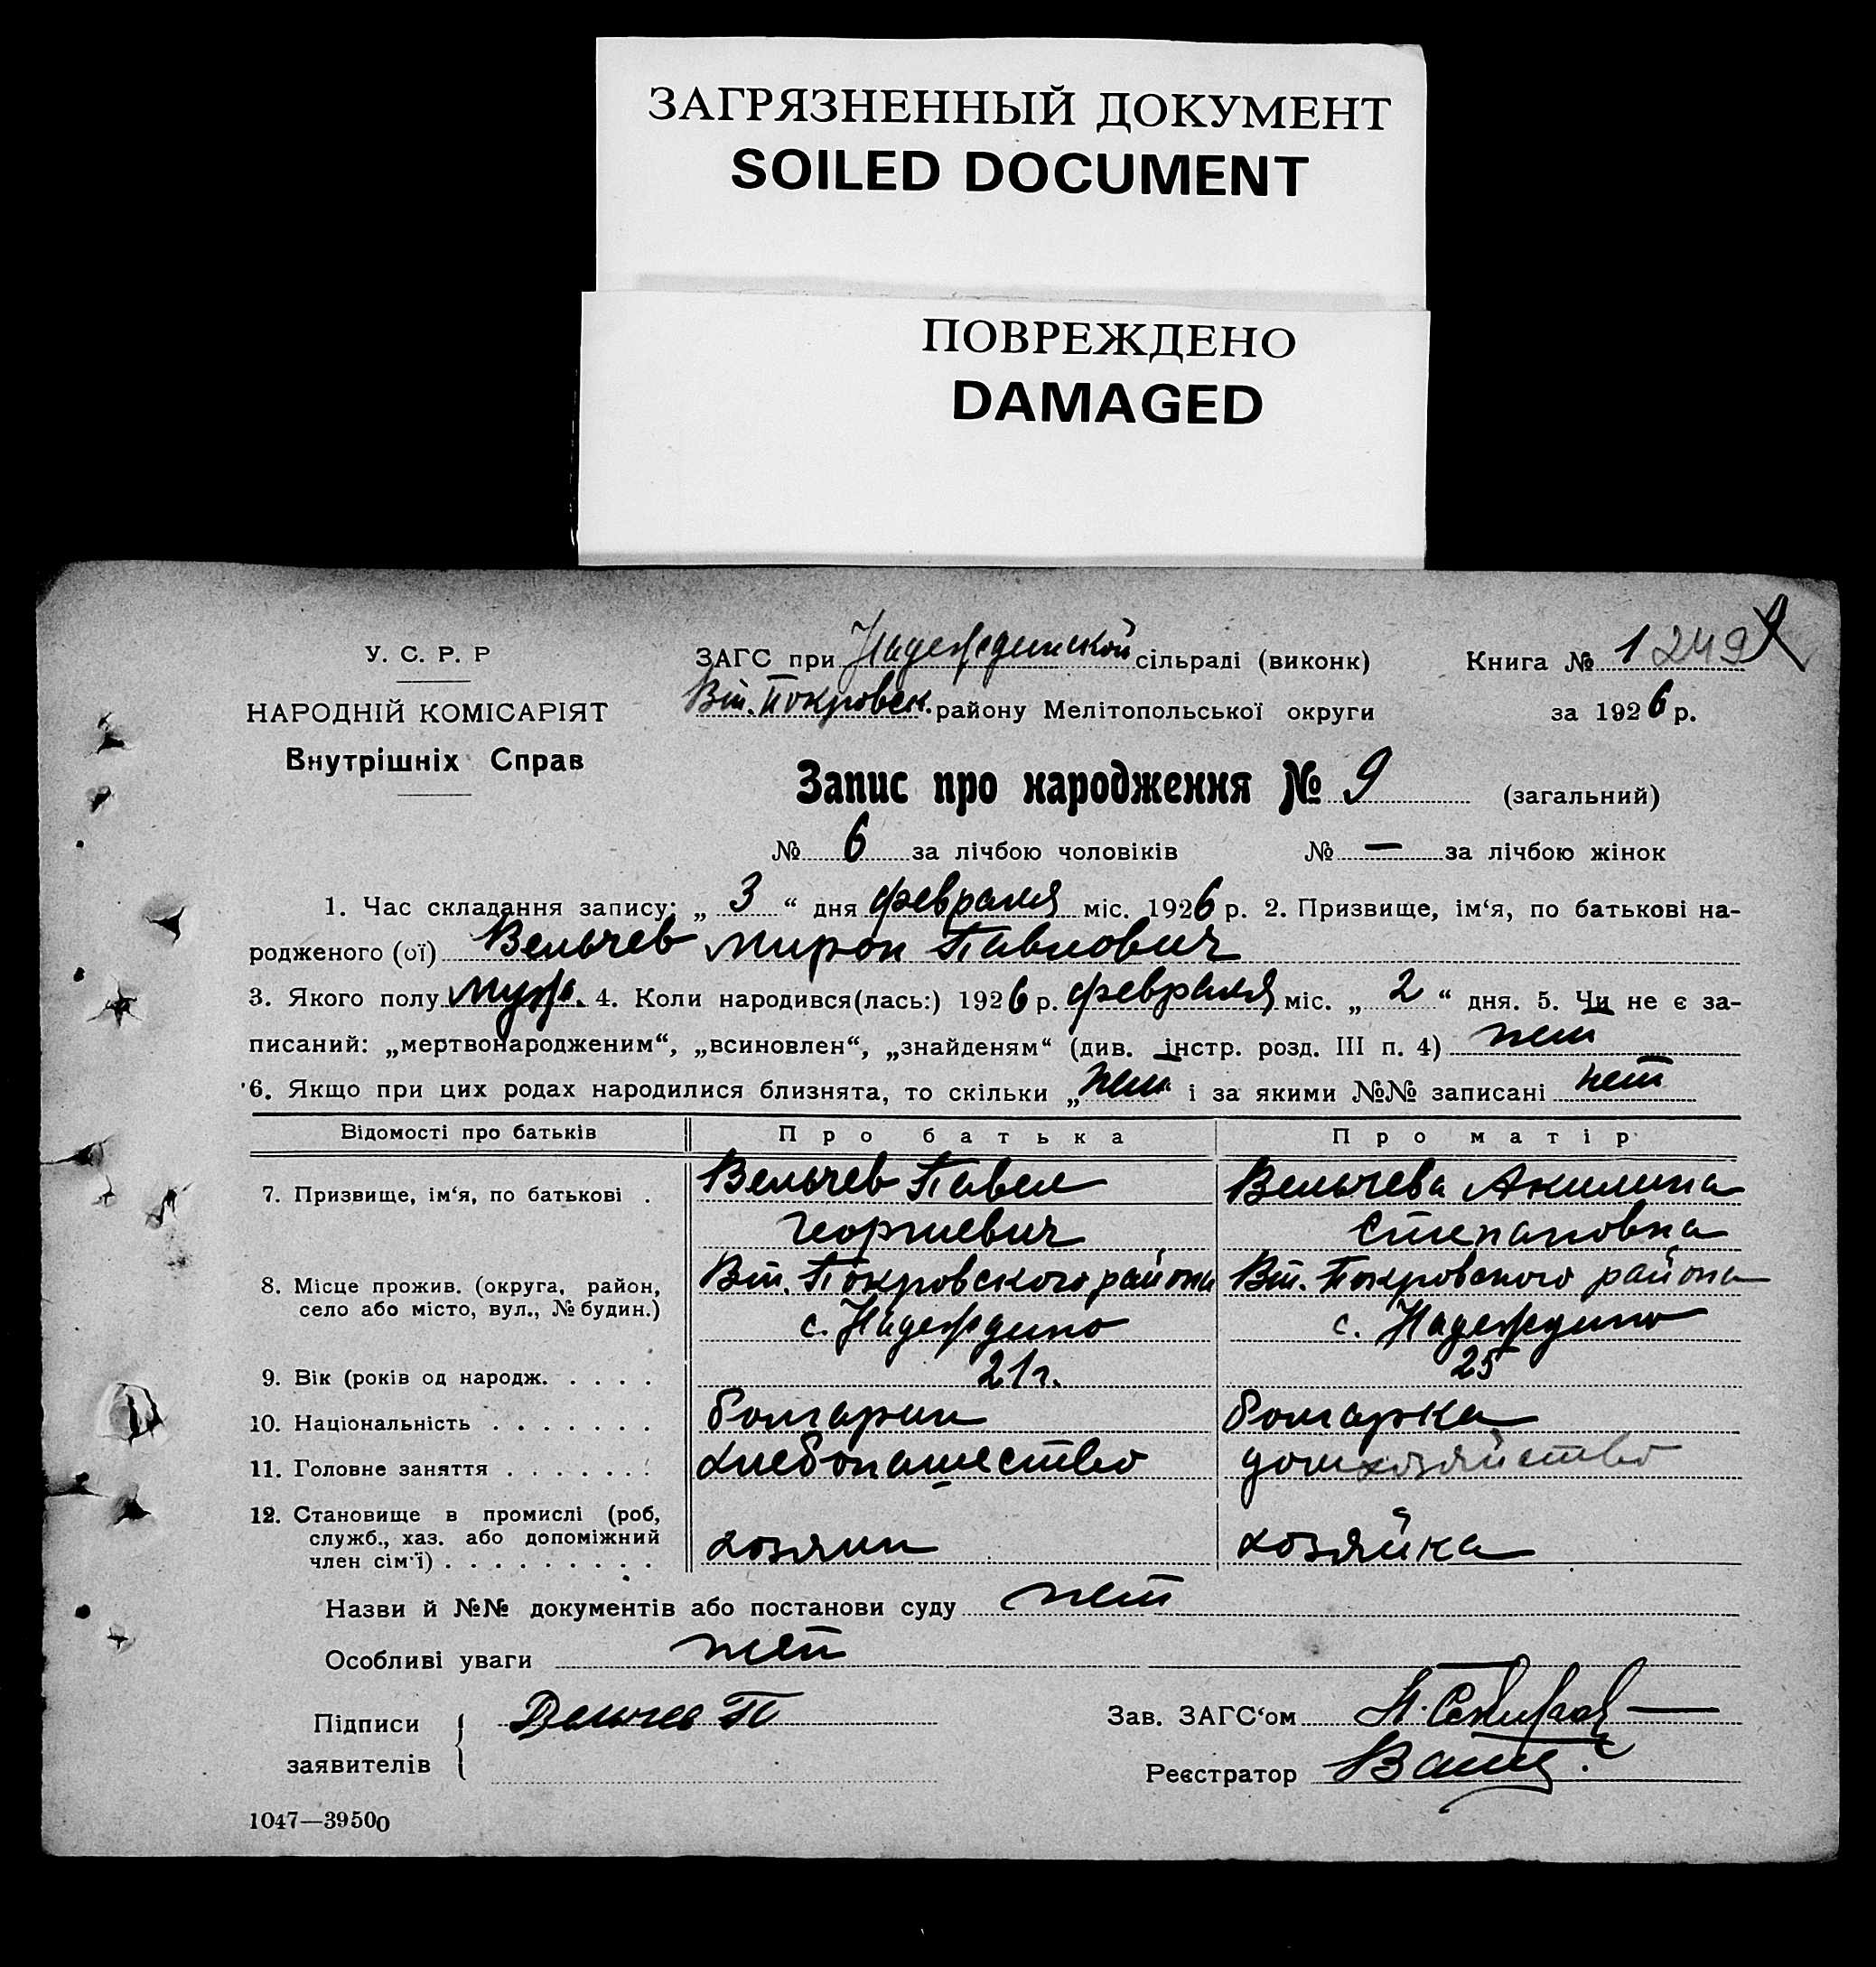 ЗАГРЯЗНЕННЫЙ ДОКУМЕНТ
SOILED DOCUMENT
ПОВРЕЖДЕНО
DAMAGED
У. С. Р. Р
НАРОДНІЙ КОМІСАРІЯТ
Внутрішніх Справ
ЗАГС при Надеждинской сільраді (виконк)
Вт. Покровск. району Мелітопольської округи
Книга № 1 249
за 1926 р.
Запис про народження № 9 (загальний)
№ 6 за лічбою чоловіків № — за лічбою жінок
1. Час складання запису: „ 3 “ дня февраля міс. 1926 р. 2. Призвище, ім‘я, по батькові на-
родженого (ої) Вельчев Мирон Павлович
3. Якого полу муж. 4. Коли народився(лась:) 1926 р. февраля міс. „ 2 “ дня. 5. Чи не є за-
писаний: „мертвонародженим“, „всиновлен“, „знайденям“ (див. інстр. розд. III п. 4) нет
6. Якщо при цих родах народилися близнята, то скільки „ нет “ і за якими №№ записані нет
Відомості про батьків Про батька Про матір
7. Призвище, ім‘я, по батькові . Вельчев Павел Вельчева Акилина
Георгиевич Степановна
8. Місце прожив. (округа, район, Вт. Покровского района Вт. Покровского района
село або місто, вул., № будин.) с. Надеждино с. Надеждино
9. Вік (років од народж. . . . . 21 г. 25
10. Національність . . . . . . . болгарин болгарка
11. Головне заняття . . . . . . . хлебопашество домхозяйство
12. Становище в промислі (роб,
служб., хаз. або допоміжний
член сім‘ї) . . . . . . . . . хозяин хозяйка
Назви й №№ документів або постанови суду нет
Особливі уваги нет
Підписи
заявителів
Вельчев П
Зав. ЗАГС‘ом
Реєстратор
1047—39500